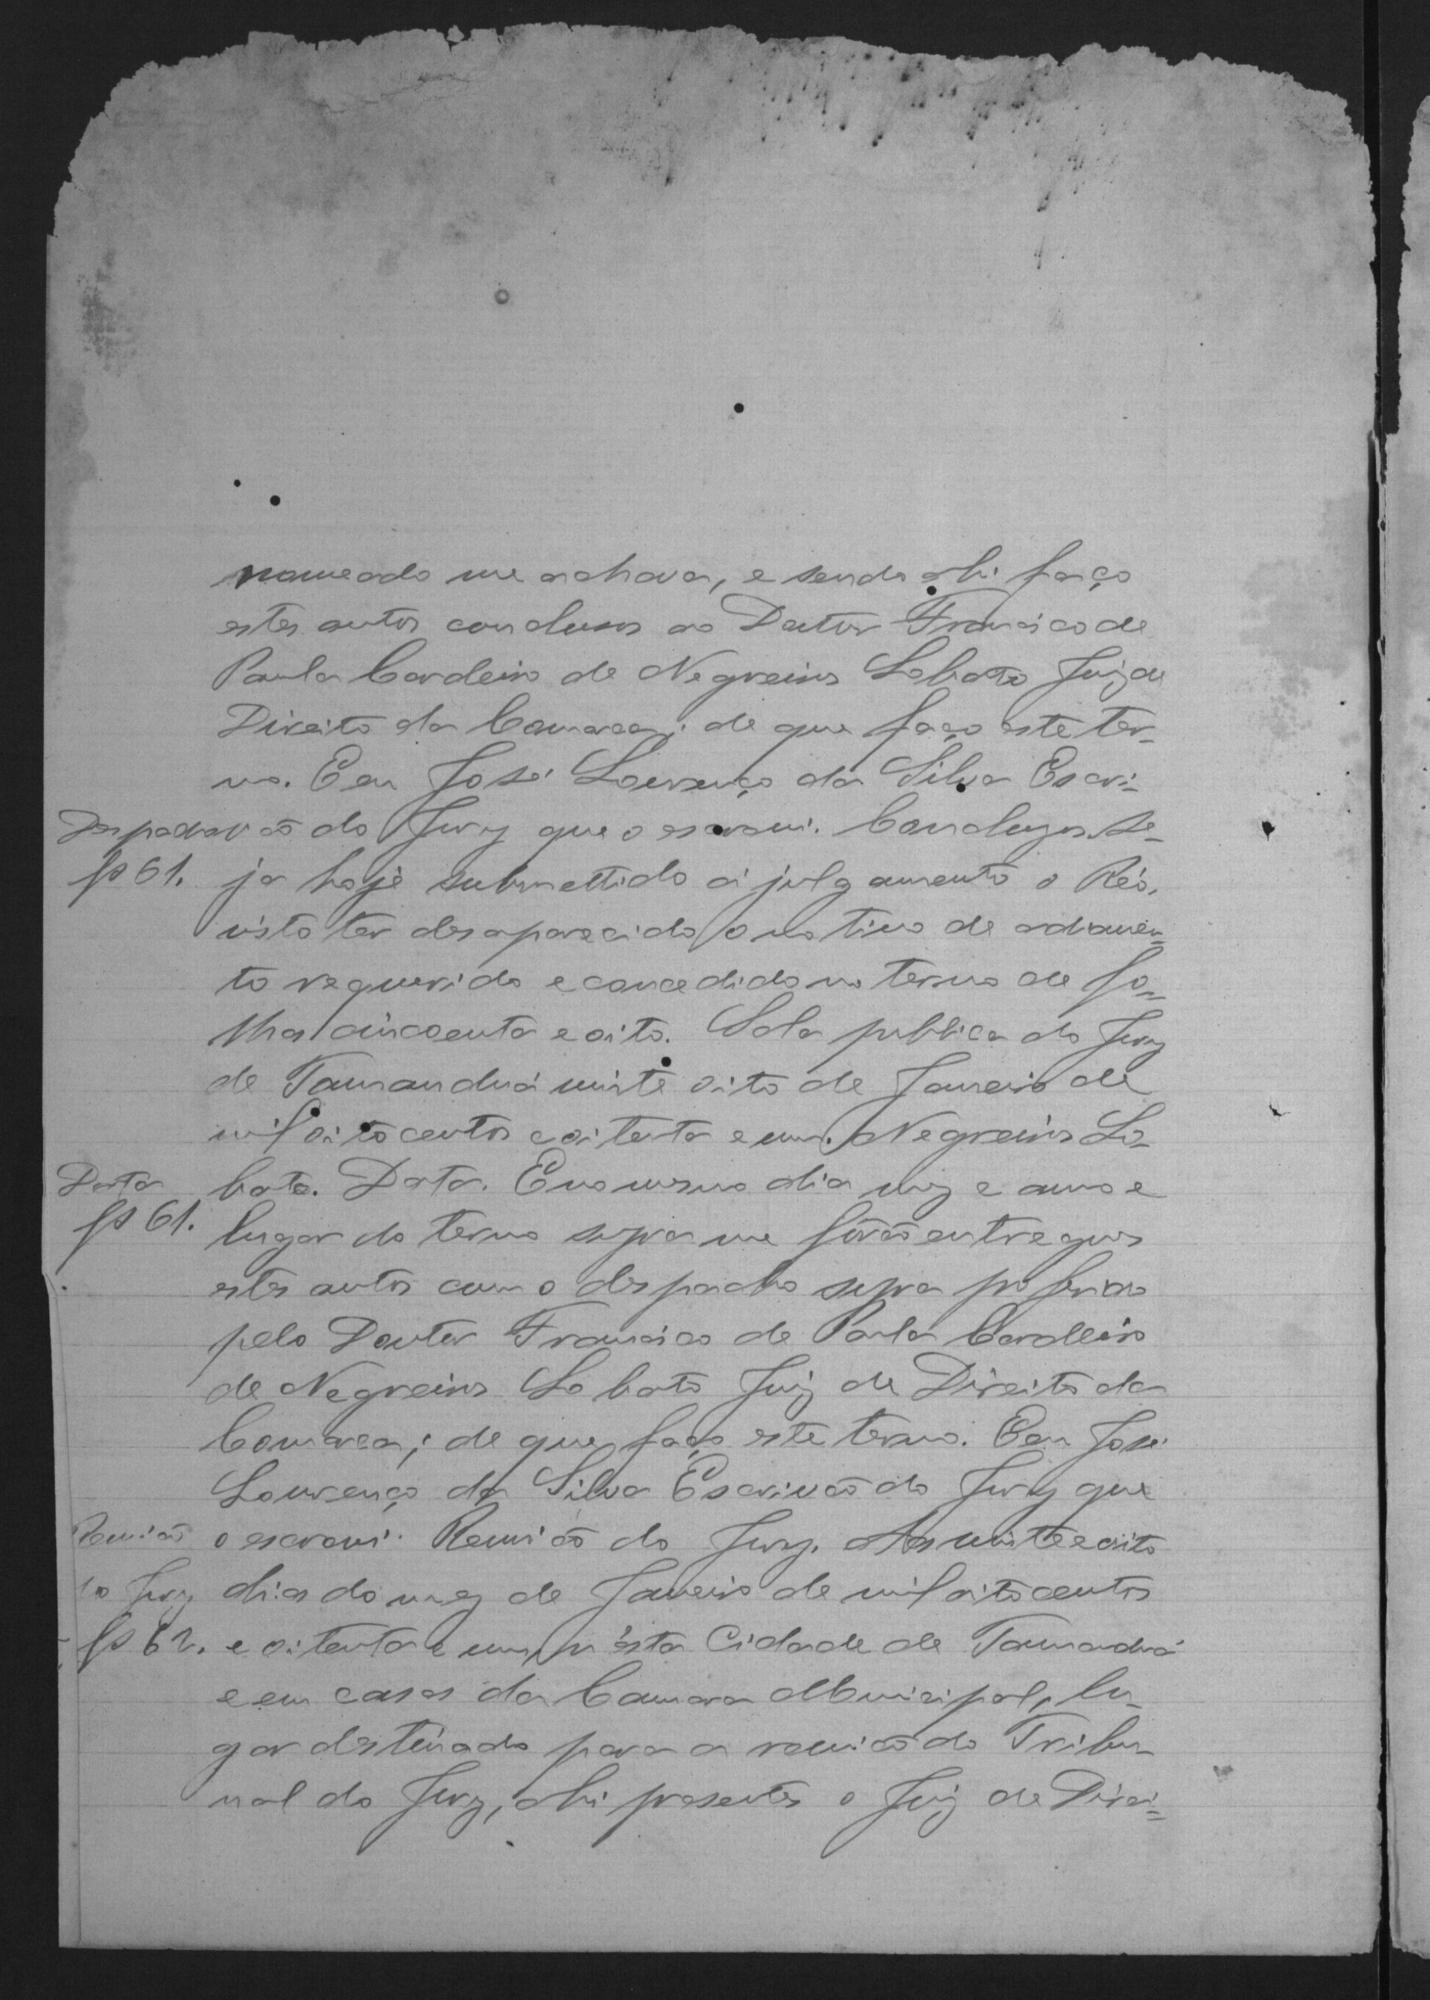 nomeado me achava, e sendo ahi faço
estes autos conclusos ao Doutor Francisco de
Paula Cordeiro de Negreiros Lobato Juiz de
Direito da Comarca; de que faço este ter-
mo. Eu José Lourenço da Silva Escri-
Despacho vão do Jury que o escrevi. Conclusos. Se-
fs 61. ja hoje submettido a julgamento o Réo,
visto ter desaparecido o motivo de adiamen-
to requerido e concedido no termo de fo-
lhas cincoenta e oito. Sala publica do Jury
de Tamanduá vinte oito de Janeiro de
mil oito centos e oitenta e um. Negreiros Lo-
Data bato. Data. E no mesmo dia mez e anno e
fs 61. lugar do termo supra me forão entregues
estes autos com o despacho supra proferido
pelo Doutor Francisco de Paula Cordeiro
de Negreiros Lobato Juiz de Direito da
Comarca; de que faço este termo. Eu José
Lourenço da Silva Escrivão do Jury que
Reunião o escrevi. Reunião do Jury. Aos vinte e oito
do Jury dias do mez de Janeiro de mil oito centos
fs 62. e oitenta e um, n'esta Cidade de Tamanduá
e em casas da Camara Municipal, lu-
gar destinado para a reunião do Tribu-
nal do Jury, ahi presentes o Juiz de Direi-